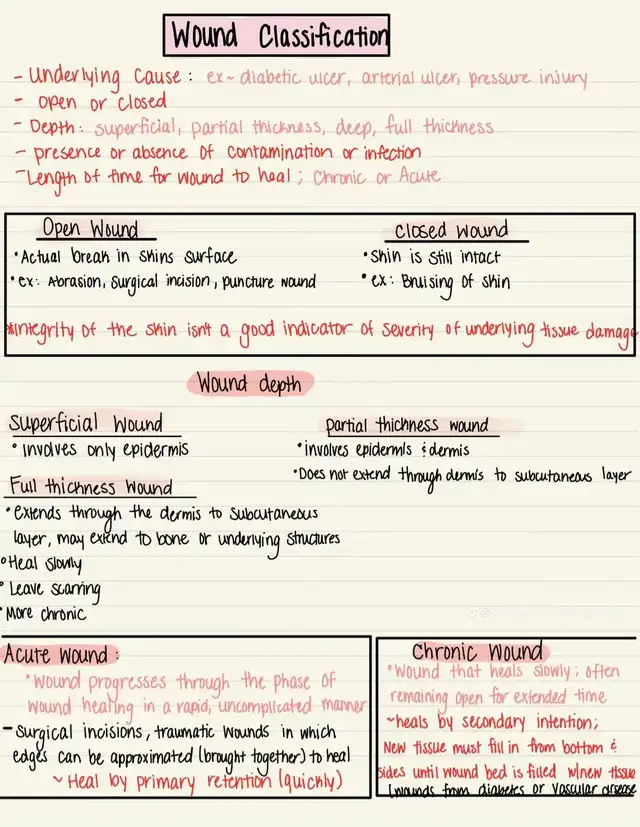 Wound Classification
- Underlying Cause: ex~ diabetic ulcer, arterial ulcer, pressure injury
- open or closed
- Depth: superficial, partial thickness, deep, full thickness
- presence or absence of contamination or infection
- Length of time for wound to heal; Chronic or Acute
Open Wound
• Actual break in skins surface
• ex: Abrasion, surgical incision, puncture wound
closed wound
• Skin is still intact
• ex: Bruising of skin
*Integrity of the skin isn't a good indicator of severity of underlying tissue damage
Wound depth
Superficial Wound
• involves only epidermis
partial thickness wound
• involves epidermis & dermis
• Does not extend through dermis to subcutaneous layer
Full thickness Wound
• Extends through the dermis to subcutaneous
layer, may extend to bone or underlying structures
• Heal slowly
• Leave scarring
• More chronic
Acute Wound:
• Wound progresses through the phase of
wound healing in a rapid, uncomplicated manner
- Surgical incisions, traumatic wounds in which
edges can be approximated (brought together) to heal
~ Heal by primary retention (quickly)
Chronic Wound
• Wound that heals slowly; often
remaining open for extended time
~heals by secondary intention;
New tissue must fill in from bottom &
sides until wound bed is filled w/new tissue
(wounds from diabetes or vascular disease